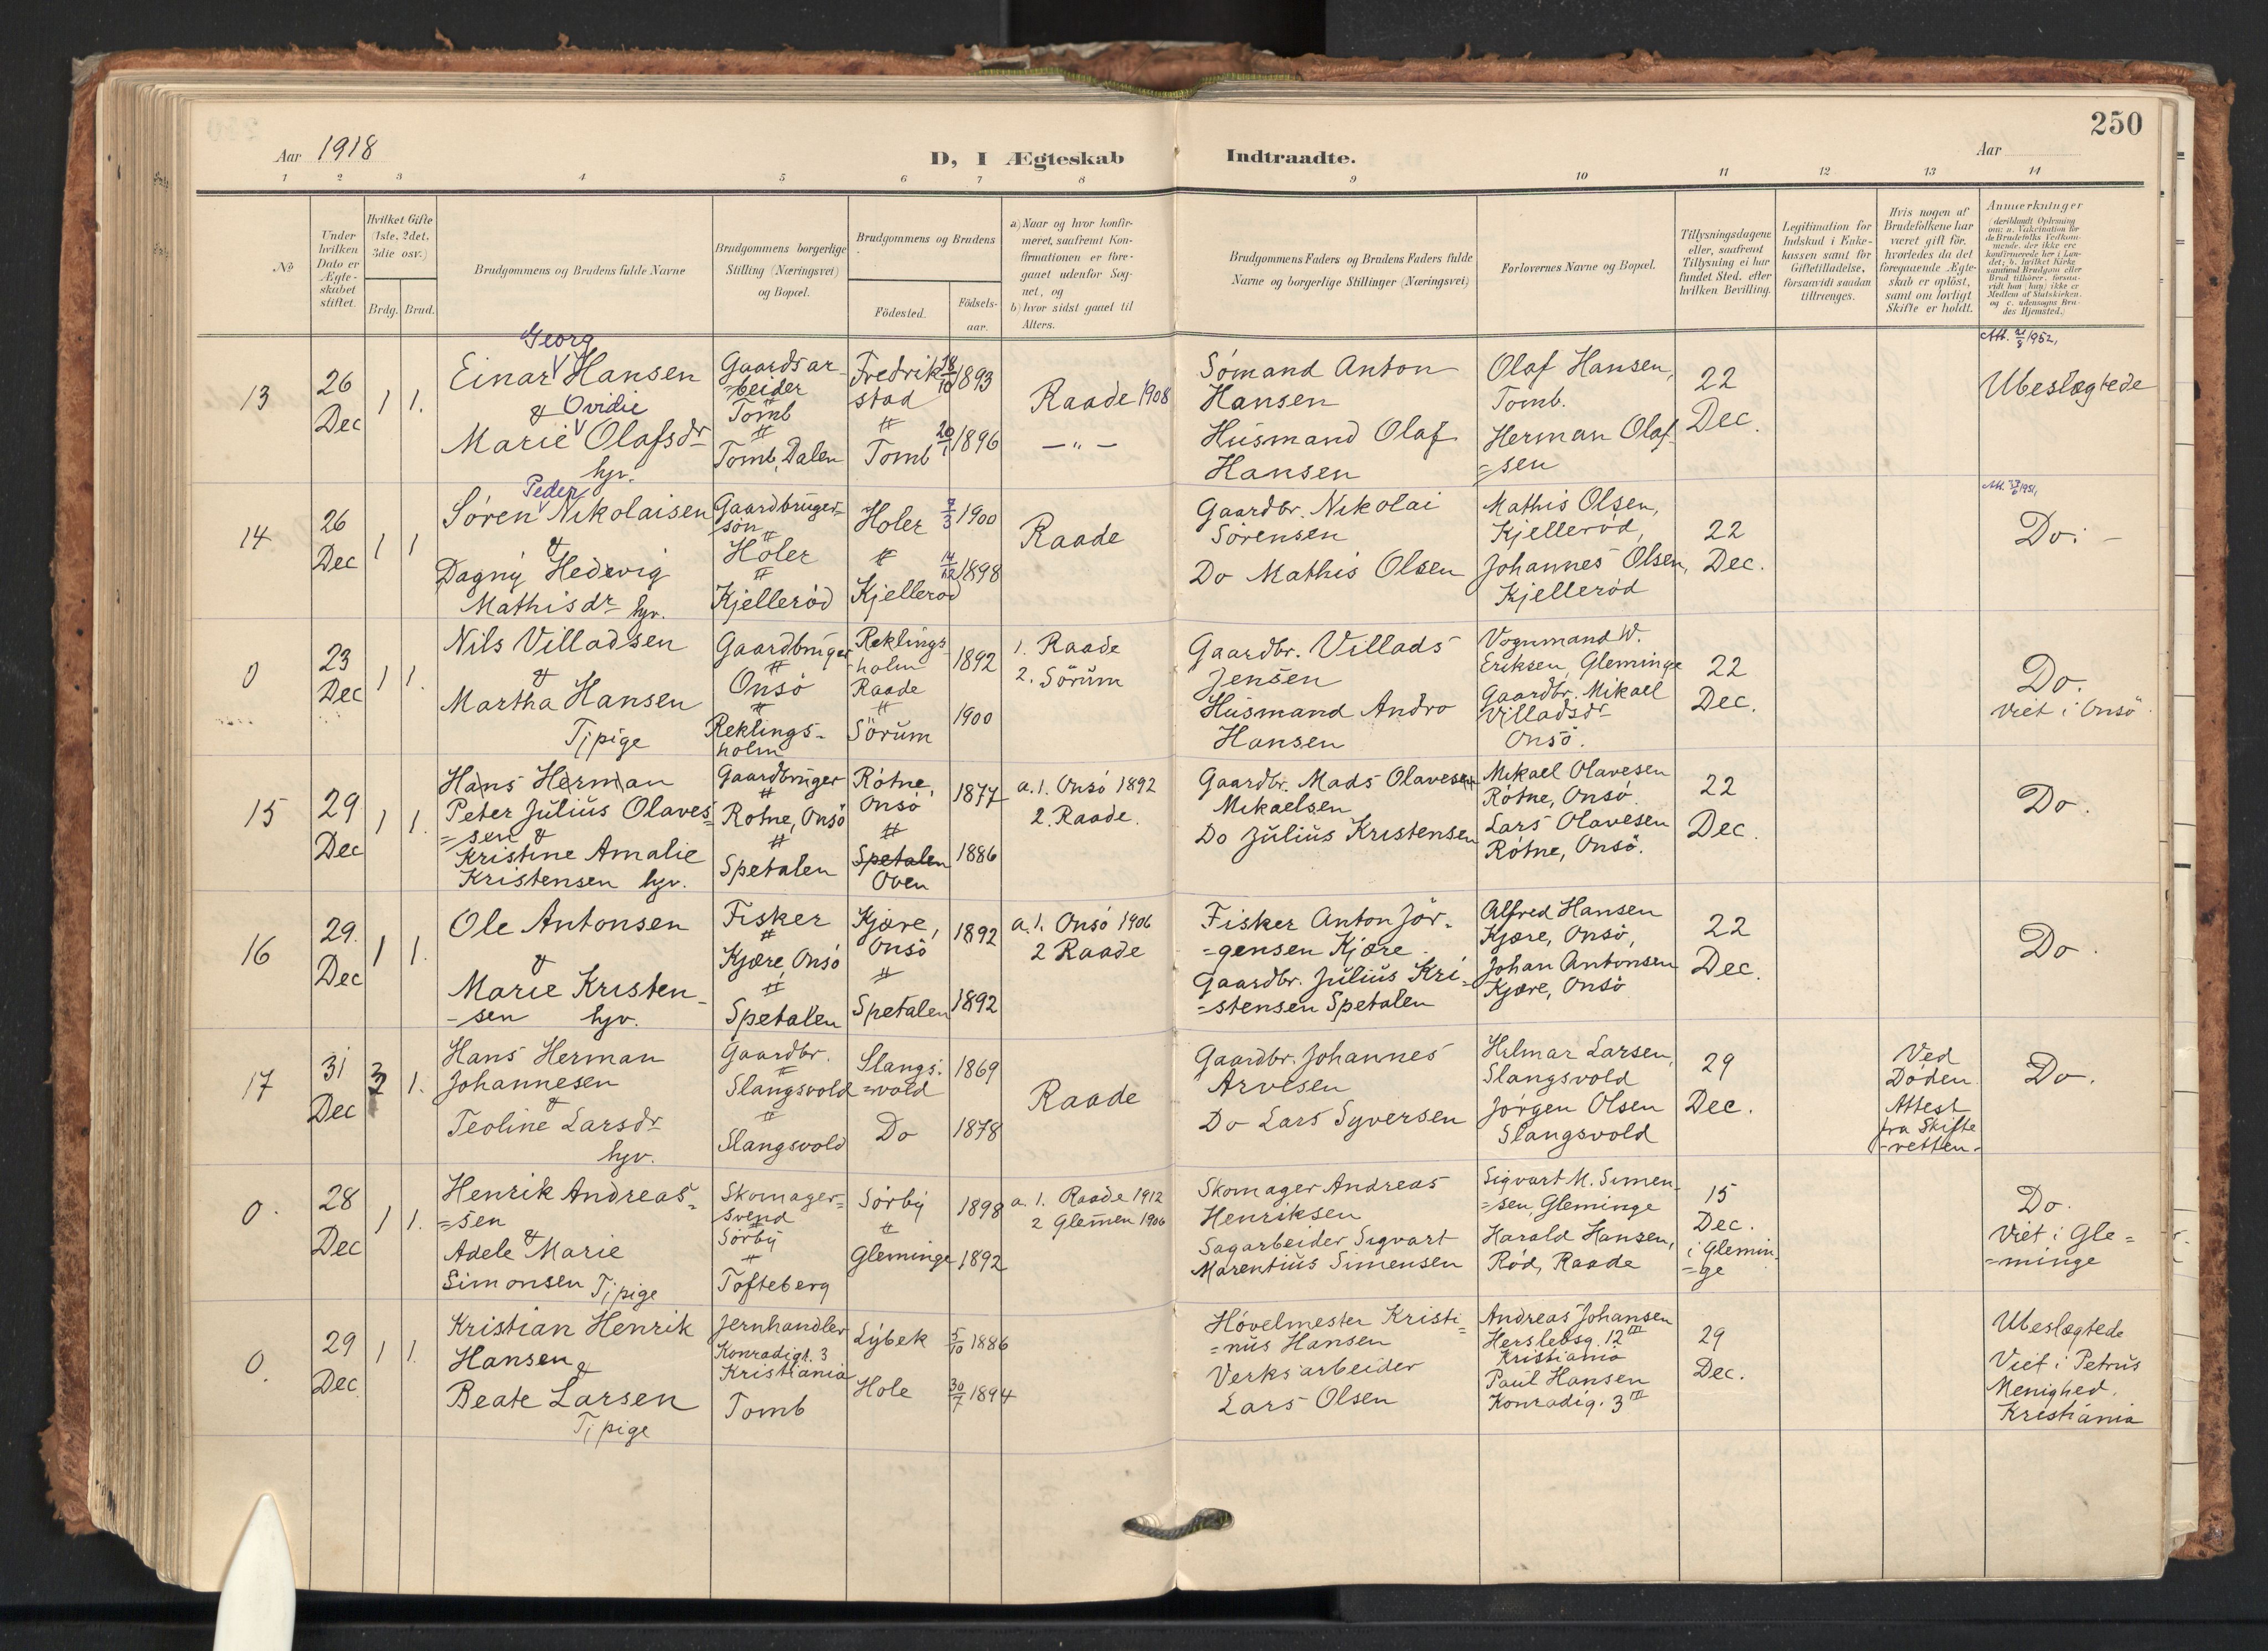 250
Aar 1918
D, I Ægteskab Indtraadte.
Aar
1 2 3 4 5 6 7 8 9 10 11 12 13 14
No
Under
hvilken
Dato er
Ægte-
skabet
stiftet.
Hvilket Gifte
(1ste, 2det,
3die osv.)
Brdg. Brud.
Brudgommens og Brudens fulde Navne
Brudgommens borgerlige
Stilling (Næringsvei)
og Bopæl.
Brudgommens og Brudens
Födested.
Födsels-
aar.
a) Naar og hvor konfir-
meret, saafremt Kon-
firmationen er fore-
gaaet udenfor Sog-
net, og
b) hvor sidst gaaet til
Alters.
Brudgommens Faders og Brudens Faders fulde
Navne og borgerlige Stillinger (Næringsvei)
Forlovernes Navne og Bopæl.
Tillysningsdagene
eller, saafremt
Tillysning ei har
fundet Sted, efter
hvilken Bevilling.
Legitimation for
Indskud i Enke-
kassen samt for
Giftetilladelse,
forsaavidt saadan
tiltrænges.
Hvis nogen af
Brudefolkene har
været gift för,
hvorledes da det
foregaaende Ægte-
skab er oplöst,
samt om lovligt
Skifte er holdt.
Anmærkninger
(deriblandt Oplysning
om: a. Vakcination for
de Brudefolks Vedkom-
mende, der ikke ere
konfirmerede her i Lan-
det; b. hvilket Kirke-
samfund Brudgom eller
Brud tilhører, forsaa-
vidt han (hun) ikke er
Medlem af Statskirken,
og c. udensogns Bru-
des Hjemsted.)
13
26
Dec
1 1.
Georg
Einar Hansen
& Ovidie
Marie Olafsdr
hjv.
Gaardsar-
beider
Tomb
"
Tomb, Dalen
Fredrik
stad
"
Tomb
18/10 1893
20/1 1896
Raade 1908
— " —
Sømand Anton
Hansen
Husmand Olaf
Hansen
Olaf Hansen,
Tomb.
Herman Olaf-
=sen
22
Dec.
Ubeslægtede
14
26
Dec
1 1
Peder
Søren Nikolaisen
&
Dagny Hedevig
Mathisdr hjv.
Gaardbruger-
søn
"
Holer
"
Kjellerød
Holer
"
Kjellerød
7/3 1900
14/12 1898
Raade
Gaardbr. Nikolai
Sørensen
Do Mathis Olsen
Mathis Olsen,
Kjellerød,
Johannes Olsen,
Kjellerød
22
Dec.
Do. -
0
23
Dec
1 1.
Nils Villadsen
&
Martha Hansen
Tjpige
Gaardbruger
"
Onsø
"
Reklings-
holm
Reklings
-holm
Raade
"
Sørum
1892
1900
1. Raade
2. Sørum
Gaardbr. Villads
Jensen
Husmand Andro
Hansen
Vognmand W.
Eriksen, Gleminge
Gaardbr. Mikael
Villadsdr
Onsø.
22
Dec.
Do.
Viet i Onsø.
15
29
Dec
1 1.
Hans Herman
Peter Julius Olaves-
=sen &
Kristine Amalie
Kristensen hjv.
Gaardbruger
"
Røtne, Onsø
"
Spetalen
Røtne,
Onsø
"
Spetalen
Oven
1877
1886
a. 1. Onsø 1892
2. Raade.
Gaardbr. Mads Olavesen
Mikaelsen
Do Julius Kristensen
Mikael Olavesen
Røtne, Onsø.
Lars Olavesen
Røtne, Onsø.
22
Dec.
Do.
16
29.
Dec
1 1.
Ole Antonsen
&
Marie Kristen-
-sen hjv.
Fisker
"
Kjære, Onsø
"
Spetalen
Kjære,
Onsø
"
Spetalen
1892
1892
a. 1. Onsø 1906
2 Raade
Fisker Anton Jør-
=gensen Kjære.
Gaardbr. Julius Kri-
=stensen Spetalen
Alfred Hansen
Kjære, Onsø,
Johan Antonsen
Kjære, Onsø
22
Dec.
Do.
17
31
Dec
1.
Hans Herman
Johannesen
&
Teoline Larsdr
hjv.
Gaardbr.
"
Slangsvold
"
Slangsvold
Slangs-
=vold
Do
1869
1878
Raade
Gaardbr. Johannes
Arvesen
Do Lars Syversen
Hilmar Larsen,
Slangsvold
Jørgen Olsen
Slangsvold
29
Dec.
Ved
Døden.
Attest
fra Skifte
-retten.
Do.
0.
28
Dec
1 1.
Henrik Andreas-
=sen
&
Adele Marie
Simonsen Tjpige
Skomager-
svend
Sørby
"
Tofteberg
Sørby
"
Gleminge
1898
1892
a. 1. Raade 1912
2 Glemen 1906
Skomager Andreas
Henriksen
Sagarbeider Sigvart
Marentius Simensen
Sigvart M. Simen-
=sen, Gleminge
Harald Hansen,
Rød, Raade
15
Dec.
i Glemin-
=ge
Do.
Viet i Gle=
=minge
0.
29
Dec.
1 1.
Kristian Henrik
Hansen &
Beate Larsen
Tjpige
Jernhandler
Konradigt. 3
Kristiania
Tomb
Lybek
Hole
5/10 1886
30/7 1894
Høvelmester Kristi-
=nus Hansen
Verksarbeider
Lars Olsen
Andreas Johansen
Herslebsg. 12 III
Kristiania
Paul Hansen
Konradig. 3 III
29
Dec.
Ubeslægtede
Viet i Petrus
Menighed.
Kristiania